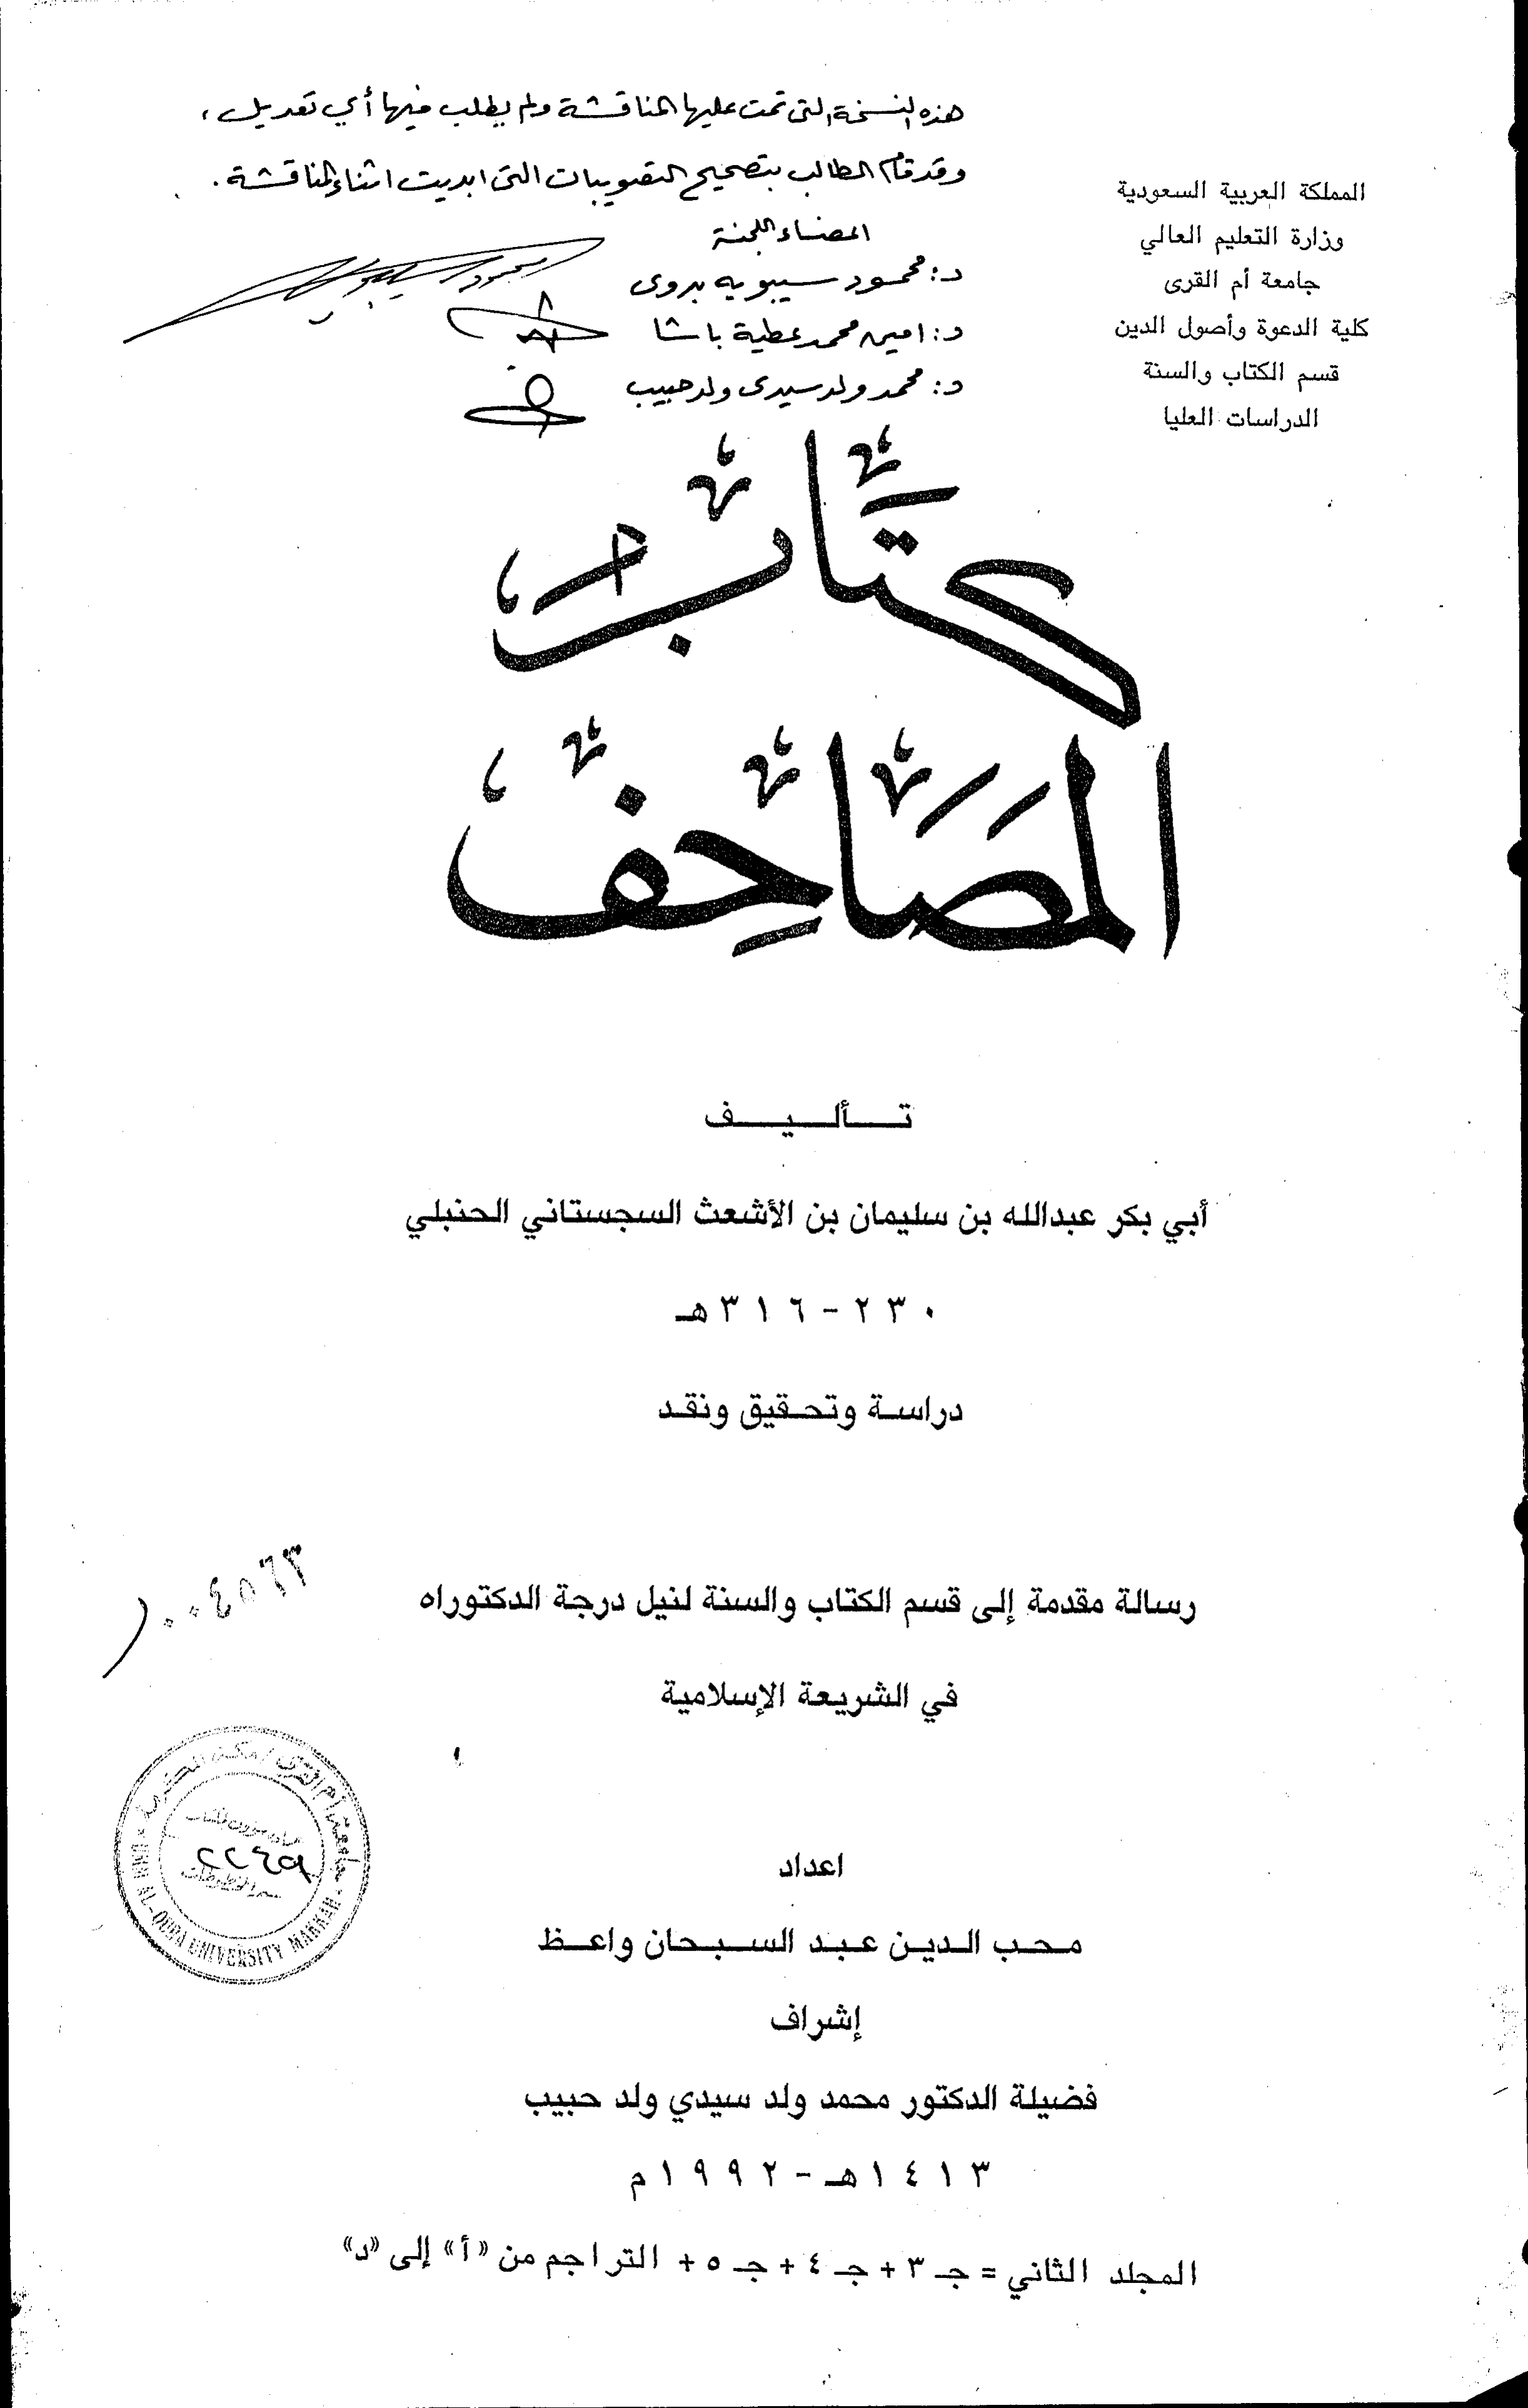 هذه النسخة التى تمت عليها المناقشة ولم يطلب فيها أي تعديل ،
وقد قام الطالب بتصحيح التصويبات التى ابديت اثناء المناقشة .
اعضاء اللجنة
د : محمود سيبويه بدوى
د : امين محمد عطية باشا
د : محمد ولد سيدى ولد حبيب
المملكة العربية السعودية
وزارة التعليم العالي
جامعة أم القرى
كلية الدعوة وأصول الدين
قسم الكتاب والسنة
الدراسات العليا
كتاب
المصاحف
تـــألـــيـــف
أبي بكر عبدالله بن سليمان بن الأشعث السجستاني الحنبلي
٢٣٠ - ٣١٦هـ
دراسـة وتحـقيق ونقـد
رسالة مقدمة إلى قسم الكتاب والسنة لنيل درجة الدكتوراه
في الشريعة الإسلامية
٠٠٤٥٦٣
جامعة أم القرى / مكة المكرمة
٢٢٤٩
UMM AL-QURA UNIVERSITY MAKKAH
اعداد
مـحـب الـديـن عـبـد السـبـحان واعـظ
إشراف
فضيلة الدكتور محمد ولد سيدي ولد حبيب
١٤١٣هـ - ١٩٩٢م
المجلد الثاني = جـ ٣ + جـ ٤ + جـ ٥ + التراجم من «أ» إلى «د»